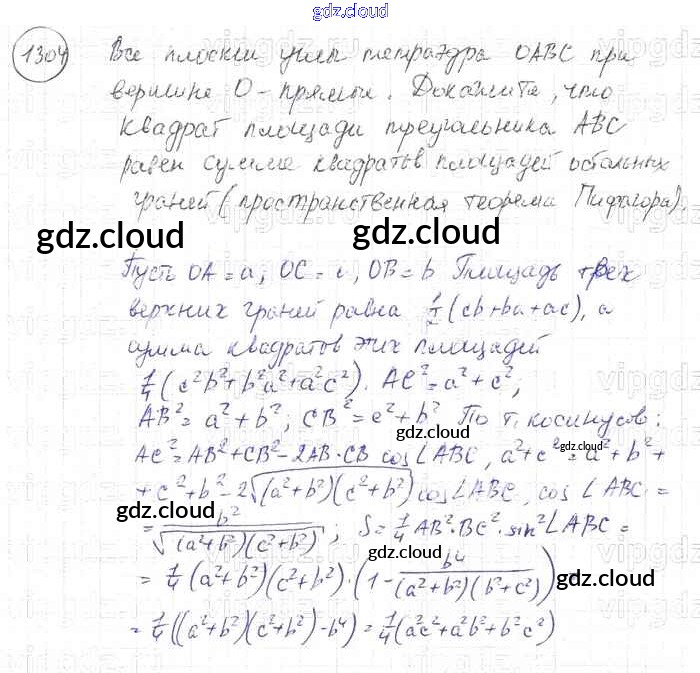 gdz.cloud
1304 Все плоские углы тетраэдра OABC при
вершине O - прямые. Докажите, что
квадрат площади треугольника ABC
равен сумме квадратов площадей остальных
граней (пространственная теорема Пифагора).
gdz.cloud gdz.cloud
Пусть OA = a; OC = c, OB = b Площадь трёх
верхних граней равна 1/2 (cb+ba+ac), а
сумма квадратов этих площадей
1/4 (c²b²+b²a²+a²c²). AC² = a²+c²;
AB² = a²+b²; CB² = c²+b² По т. косинусов:
gdz.cloud
AC² = AB²+CB²-2AB·CB cos∠ABC, a²+c² = a²+b²+
gdz.cloud
+c²+b²-2√((a²+b²)(c²+b²)) cos∠ABC, cos∠ABC =
gdz.cloud
= b²/√((a²+b²)(c²+b²)); S = 1/4 AB²·BC²·sin²∠ABC =
gdz.cloud
= 1/4 (a²+b²)(c²+b²)·(1 - b⁴/((a²+b²)(b²+c²))) =
gdz.cloud
= 1/4((a²+b²)(c²+b²)-b⁴) = 1/4(a²c²+a²b²+b²c²)